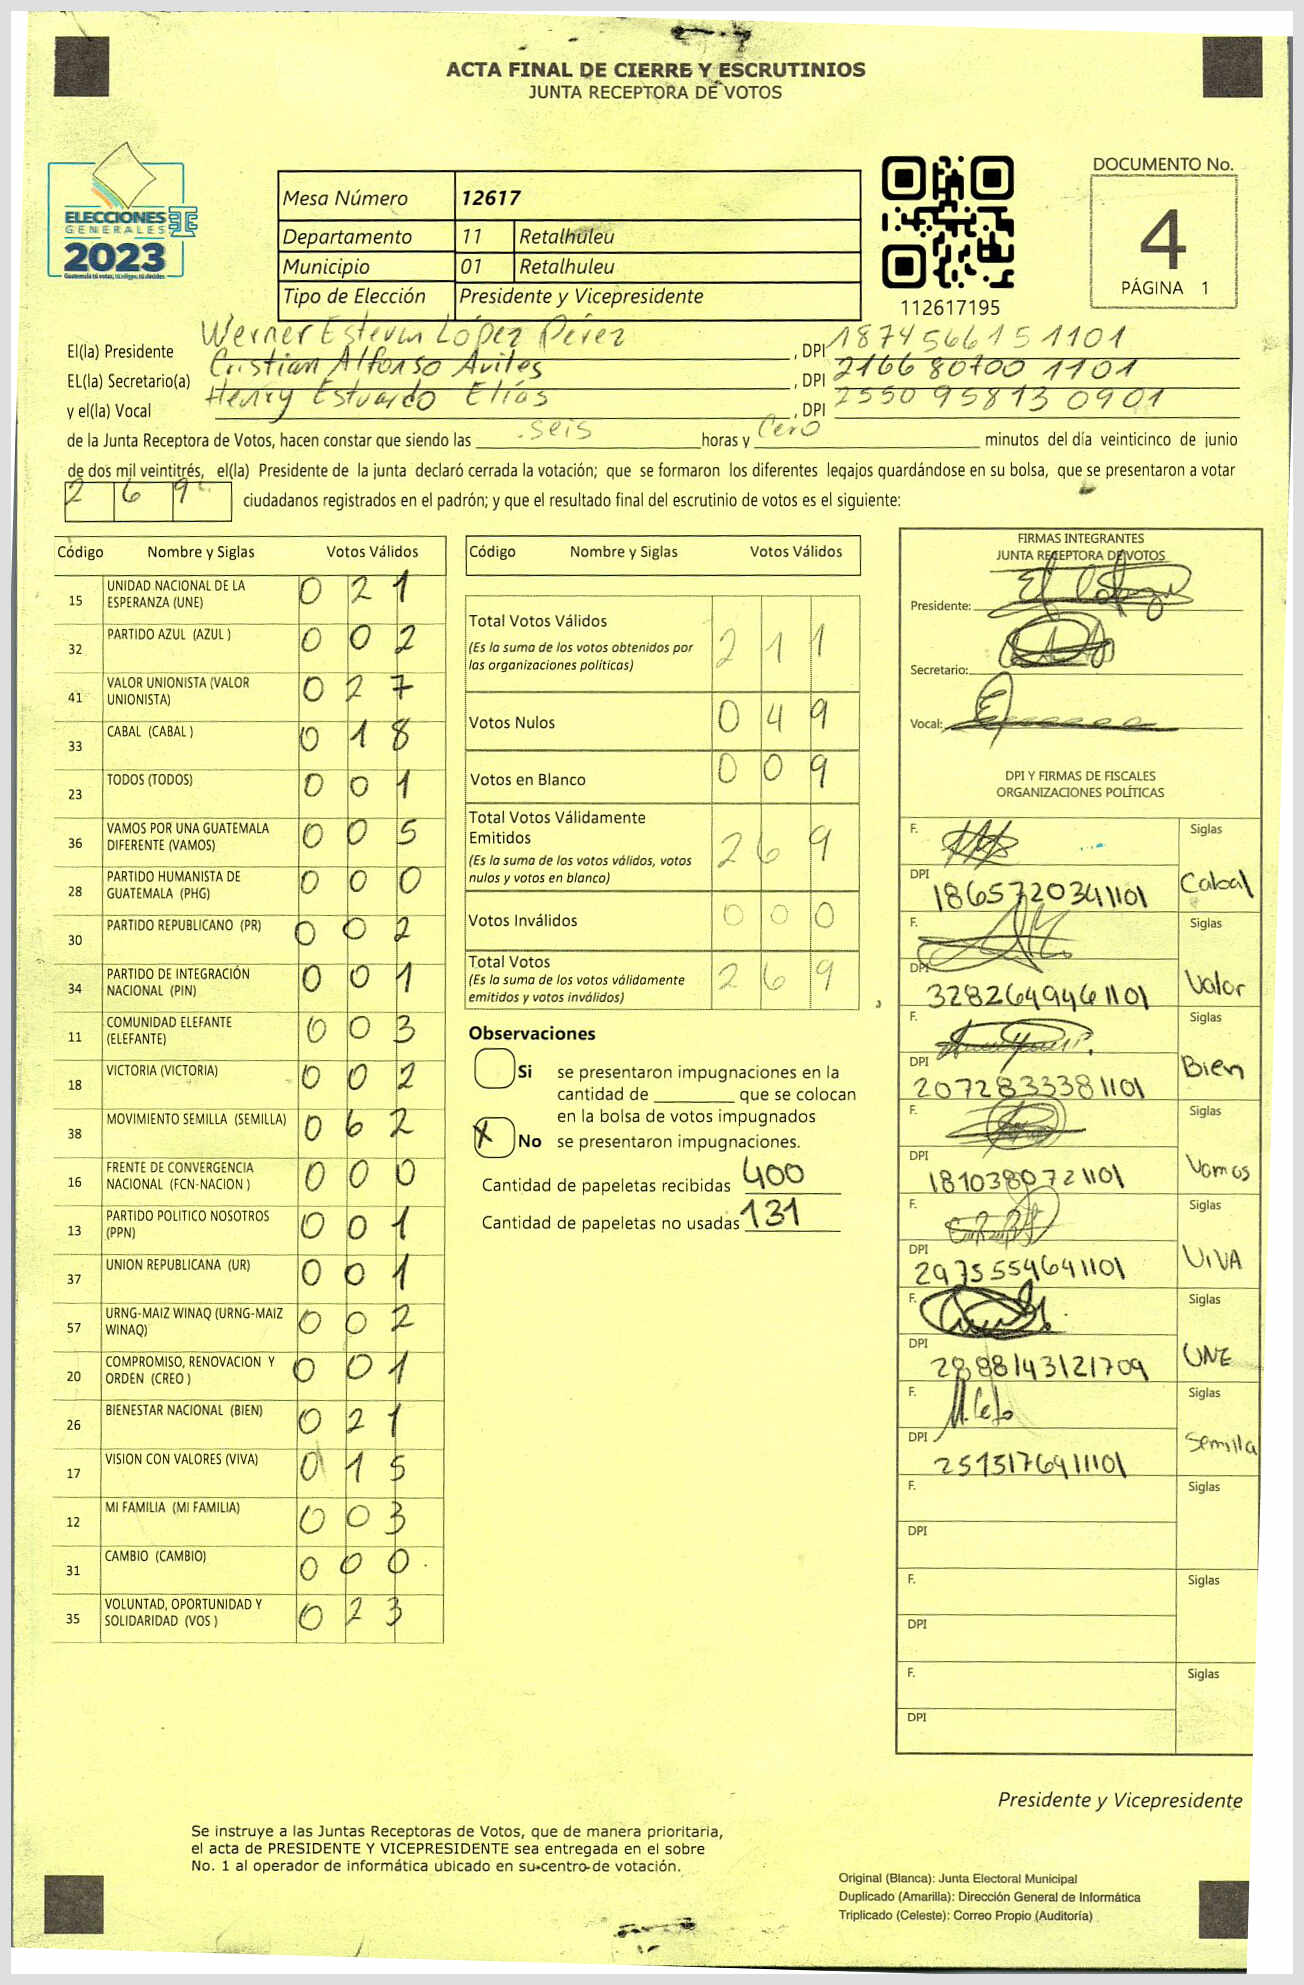 ACTA FINAL DE CIERRE Y ESCRUTINIOS
JUNTA RECEPTORA DE VOTOS
ELECCIONES
GENERALES
2023
Guatemala tú votas, tú eliges, tú decides
Mesa Número 12617
Departamento 11 Retalhuleu
Municipio 01 Retalhuleu
Tipo de Elección Presidente y Vicepresidente
112617195
DOCUMENTO No.
4
PÁGINA 1
El(la) Presidente Werner Estevan López Pérez , DPI 1874566151101
EL(la) Secretario(a) Cristian Alfonso Aviles , DPI 2166807001101
y el(la) Vocal Henry Estuardo Elías , DPI 2550958130901
de la Junta Receptora de Votos, hacen constar que siendo las seis horas y cero minutos del día veinticinco de junio
de dos mil veintitrés, el(la) Presidente de la junta declaró cerrada la votación; que se formaron los diferentes legajos guardándose en su bolsa, que se presentaron a votar
2 6 9 ciudadanos registrados en el padrón; y que el resultado final del escrutinio de votos es el siguiente:
Código Nombre y Siglas Votos Válidos
15 UNIDAD NACIONAL DE LA ESPERANZA (UNE) 0 2 1
32 PARTIDO AZUL (AZUL ) 0 0 2
41 VALOR UNIONISTA (VALOR UNIONISTA) 0 2 7
33 CABAL (CABAL ) 0 1 8
23 TODOS (TODOS) 0 0 1
36 VAMOS POR UNA GUATEMALA DIFERENTE (VAMOS) 0 0 5
28 PARTIDO HUMANISTA DE GUATEMALA (PHG) 0 0 0
30 PARTIDO REPUBLICANO (PR) 0 0 2
34 PARTIDO DE INTEGRACIÓN NACIONAL (PIN) 0 0 1
11 COMUNIDAD ELEFANTE (ELEFANTE) 0 0 3
18 VICTORIA (VICTORIA) 0 0 2
38 MOVIMIENTO SEMILLA (SEMILLA) 0 6 2
16 FRENTE DE CONVERGENCIA NACIONAL (FCN-NACION ) 0 0 0
13 PARTIDO POLITICO NOSOTROS (PPN) 0 0 1
37 UNION REPUBLICANA (UR) 0 0 1
57 URNG-MAIZ WINAQ (URNG-MAIZ WINAQ) 0 0 2
20 COMPROMISO, RENOVACION Y ORDEN (CREO ) 0 0 1
26 BIENESTAR NACIONAL (BIEN) 0 2 1
17 VISION CON VALORES (VIVA) 0 1 5
12 MI FAMILIA (MI FAMILIA) 0 0 3
31 CAMBIO (CAMBIO) 0 0 0
35 VOLUNTAD, OPORTUNIDAD Y SOLIDARIDAD (VOS ) 0 2 3
Código Nombre y Siglas Votos Válidos
Total Votos Válidos 2 1 1
(Es la suma de los votos obtenidos por
las organizaciones políticas)
Votos Nulos 0 4 9
Votos en Blanco 0 0 9
Total Votos Válidamente
Emitidos 2 6 9
(Es la suma de los votos válidos, votos
nulos y votos en blanco)
Votos Inválidos 0 0 0
Total Votos 2 6 9
(Es la suma de los votos válidamente
emitidos y votos inválidos)
Observaciones
Si se presentaron impugnaciones en la
cantidad de ________ que se colocan
en la bolsa de votos impugnados
X No se presentaron impugnaciones.
Cantidad de papeletas recibidas 400
Cantidad de papeletas no usadas 131
FIRMAS INTEGRANTES
JUNTA RECEPTORA DE VOTOS
Presidente:
Secretario:
Vocal:
DPI Y FIRMAS DE FISCALES
ORGANIZACIONES POLÍTICAS
F. Siglas
DPI 1865720341101 Cabal
F. Siglas
DPI 3282649461101 Valor
F. Siglas
DPI 2072833381101 Bien
F. Siglas
DPI 1810380721101 Vamos
F. Siglas
DPI 2975554641101 ViVA
F. Siglas
DPI 2888143121709 UNE
F. Siglas
DPI 2515176911101 Semilla
F. Siglas
DPI
F. Siglas
DPI
F. Siglas
DPI
Presidente y Vicepresidente
Se instruye a las Juntas Receptoras de Votos, que de manera prioritaria,
el acta de PRESIDENTE Y VICEPRESIDENTE sea entregada en el sobre
No. 1 al operador de informática ubicado en su centro de votación.
Original (Blanca): Junta Electoral Municipal
Duplicado (Amarilla): Dirección General de Informática
Triplicado (Celeste): Correo Propio (Auditoría)